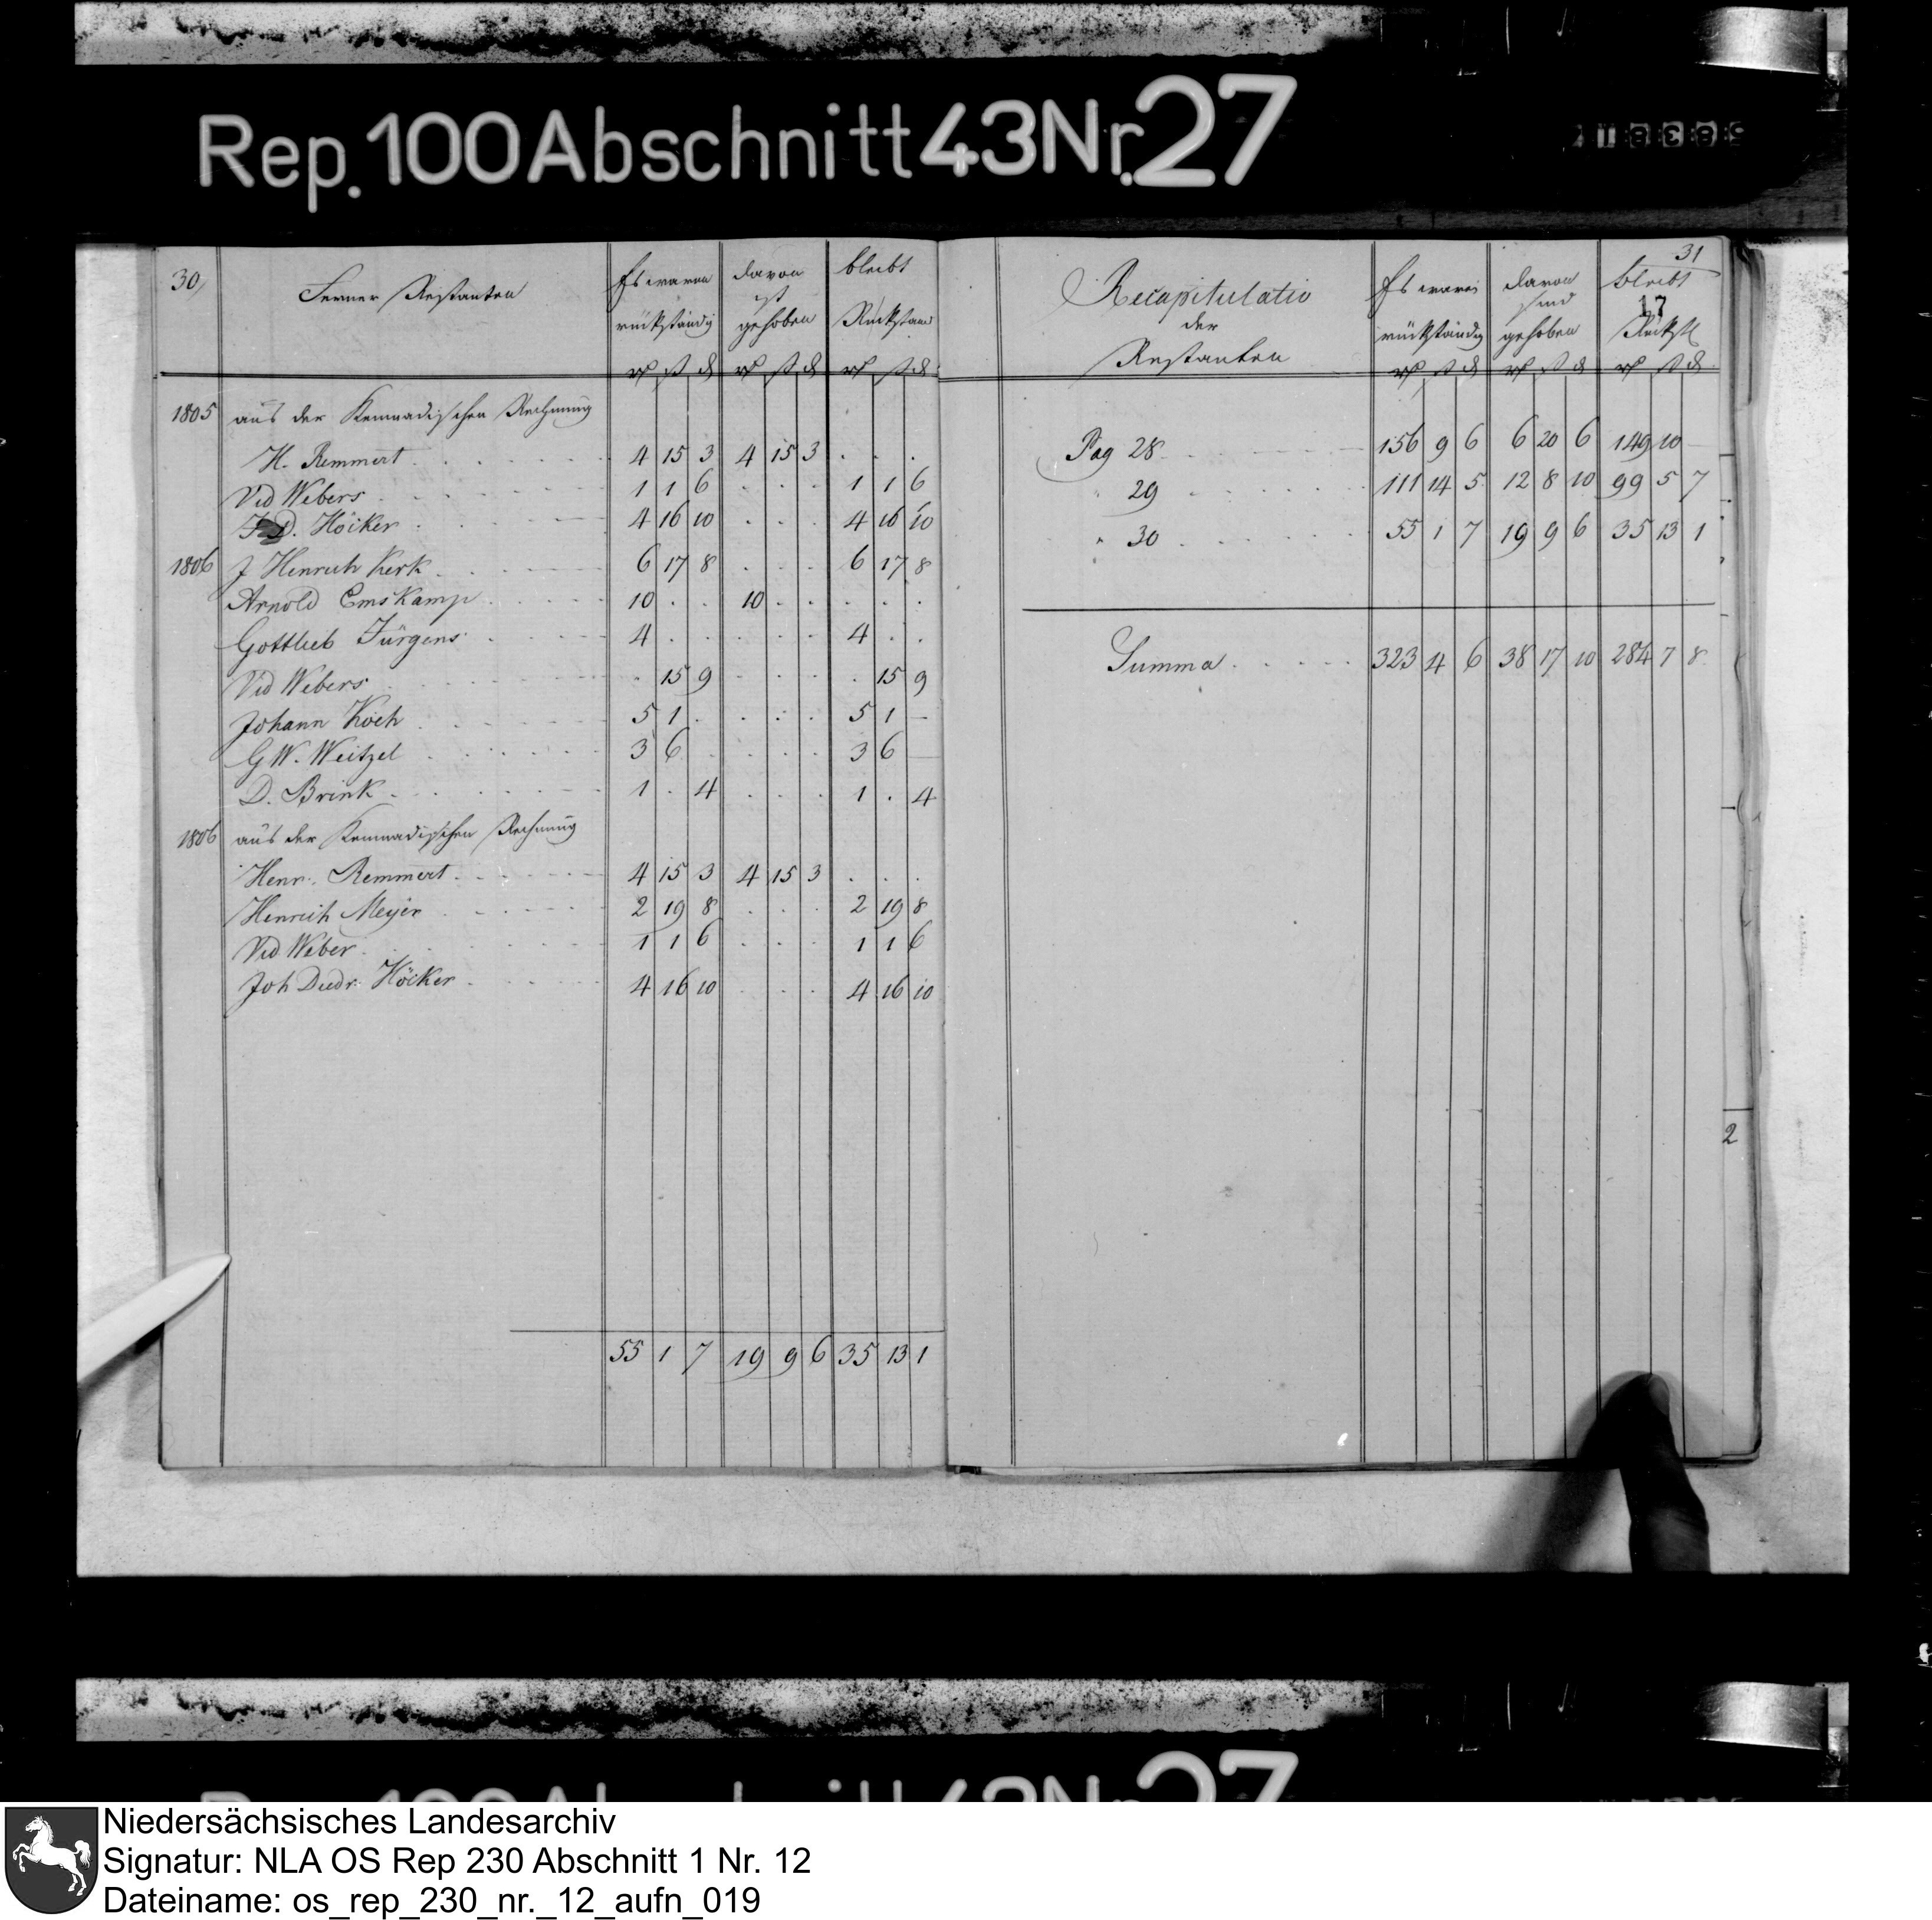 Rep. 100 Abschnitt 43 Nr. 27
30
Ferner Restanten
Es waren rückständig
davon ist gehoben
bleibt Rückstand
1805 aus der Kemnadischen Rechnung
H. Remmert 4 15 3 4 15 3 . . .
Vid Webers 1 1 6 . . . 1 1 6
J D. Höcker 4 16 10 . . . 4 16 10
1806 J Henrich Kerk 6 17 8 . . . 6 17 8
Arnold Emskamp 10 . . 10 . . . . .
Gottlieb Jürgens 4 . . . . . 4 . .
Vid Webers . 15 9 . . . . 15 9
Johann Koch 5 1 . . . . 5 1 –
G W. Weitzel 3 6 . . . . 3 6 –
D. Brink 1 . 4 . . . 1 . 4
1806 aus der Kemnadischen Rechnung
Henr. Remmert 4 15 3 4 15 3 . . .
Henrich Meyer 2 19 8 . . . 2 19 8
Vid Weber 1 1 6 . . . 1 1 6
Joh Diedr. Höcker 4 16 10 . . . 4 16 10
55 1 7 19 9 6 35 13 1
31
17
Recapitulatio
der
Restanten
Es waren rückständig
davon sind gehoben
bleibt Rückst
Pag 28 156 9 6 6 20 6 149 10 –
" 29 111 14 5 12 8 10 99 5 7
" 30 55 1 7 19 9 6 35 13 1
Summa 323 4 6 38 17 10 284 7 8
2
Niedersächsisches Landesarchiv
Signatur: NLA OS Rep 230 Abschnitt 1 Nr. 12
Dateiname: os_rep_230_nr._12_aufn_019